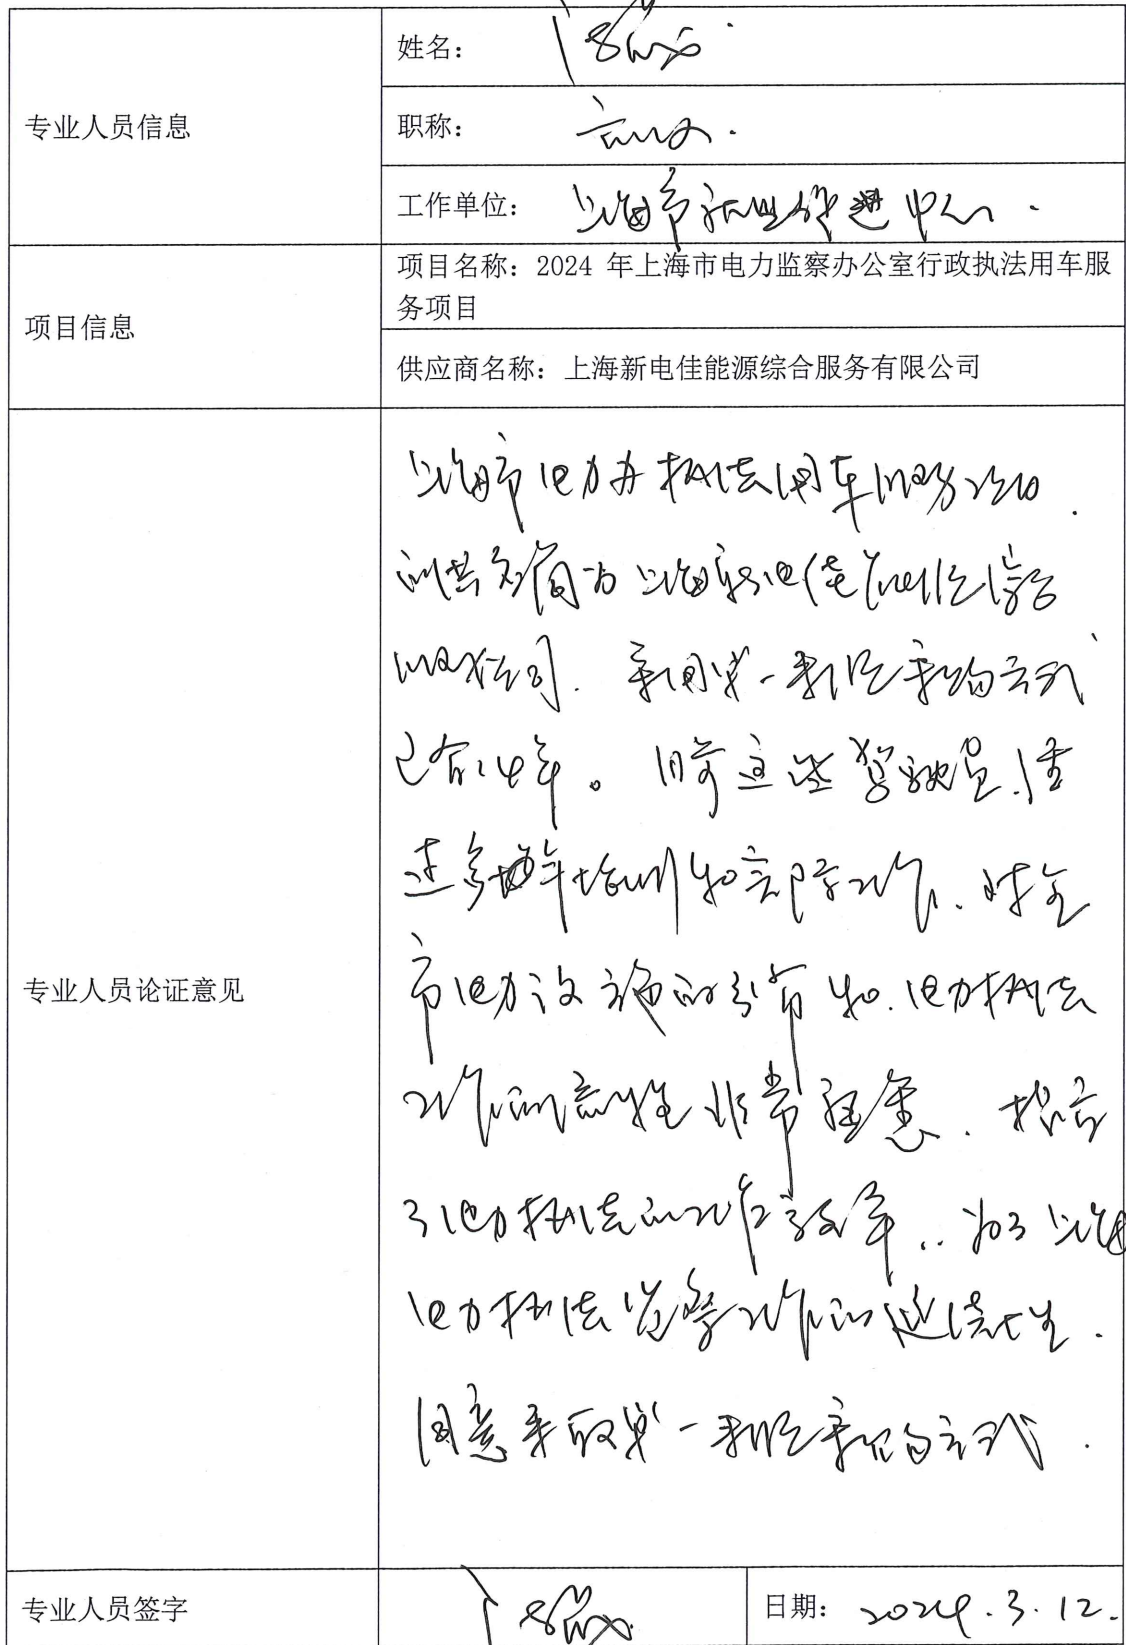 姓名：
专业人员信息
职称：高工.
工作单位：上海市就业促进中心.
项目名称：2024 年上海市电力监察办公室行政执法用车服
务项目
项目信息
供应商名称：上海新电佳能源综合服务有限公司
上海市电力办执法用车服务项目.
的供应商为上海新电佳能源综合
服务公司. 采用单一来源采购方式
已有14年。目前这些驾驶员.经
过多年培训和实际工作、对全
市电力设施的分布和.电力执法
专业人员论证意见
工作的特性非常熟悉、提高
了电力执法的工作效率..为了上海
电力执法监察工作的延续性.
同意采取单一来源采购方式.
专业人员签字
日期：2024.3.12.